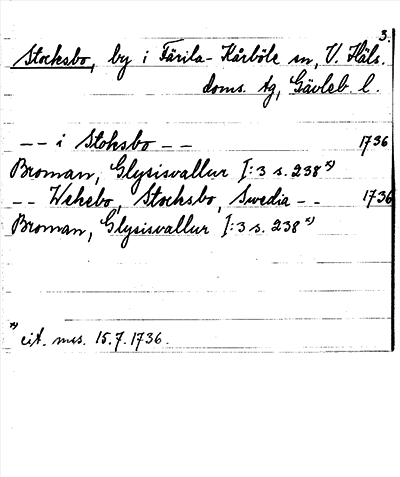 3.
Stocksbo, by i Färila-Kårböle sn, V. Häls.
doms. tg, Gävleb. l.
-- i Stoksbo -- 1736
Broman, Glysisvallur I:3 s. 238 x)
-- Wehebo, Stocksbo, Swedia -- 1736
Broman, Glysisvallur I:3 s. 238 x)
x) cit. mss. 15.7.1736.